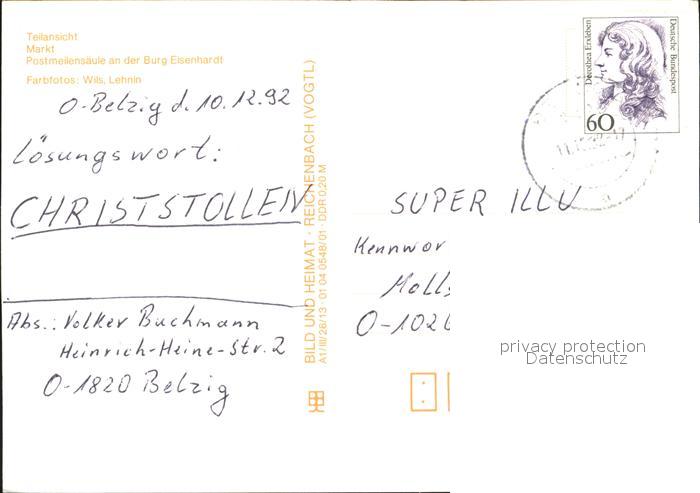 Teilansicht
Markt
Postmeilensäule an der Burg Eisenhardt
Farbfotos: Wils, Lehnin
O-Belzig d. 10.12.92
Lösungswort:
CHRISTSTOLLEN
Abs.: Volker Buchmann
Heinrich-Heine-Str. 2
O-1820 Belzig
BILD UND HEIMAT · REICHENBACH (VOGTL)
A1/III/26/13 · 01 04 0548/01 · DDR 0,20 M
Dorothea Erxleben
Deutsche Bundespost
60
SUPER ILLU
Kennwor
Molls
O-102
privacy protection
Datenschutz